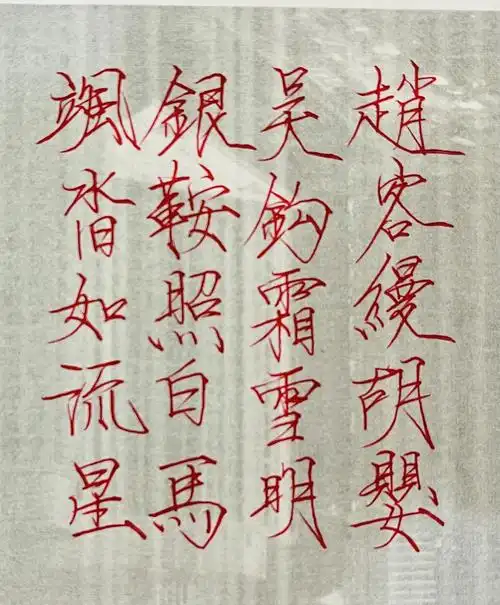 趙客縵胡嬰
吴鈎霜雪明
銀鞍照白馬
颯沓如流星